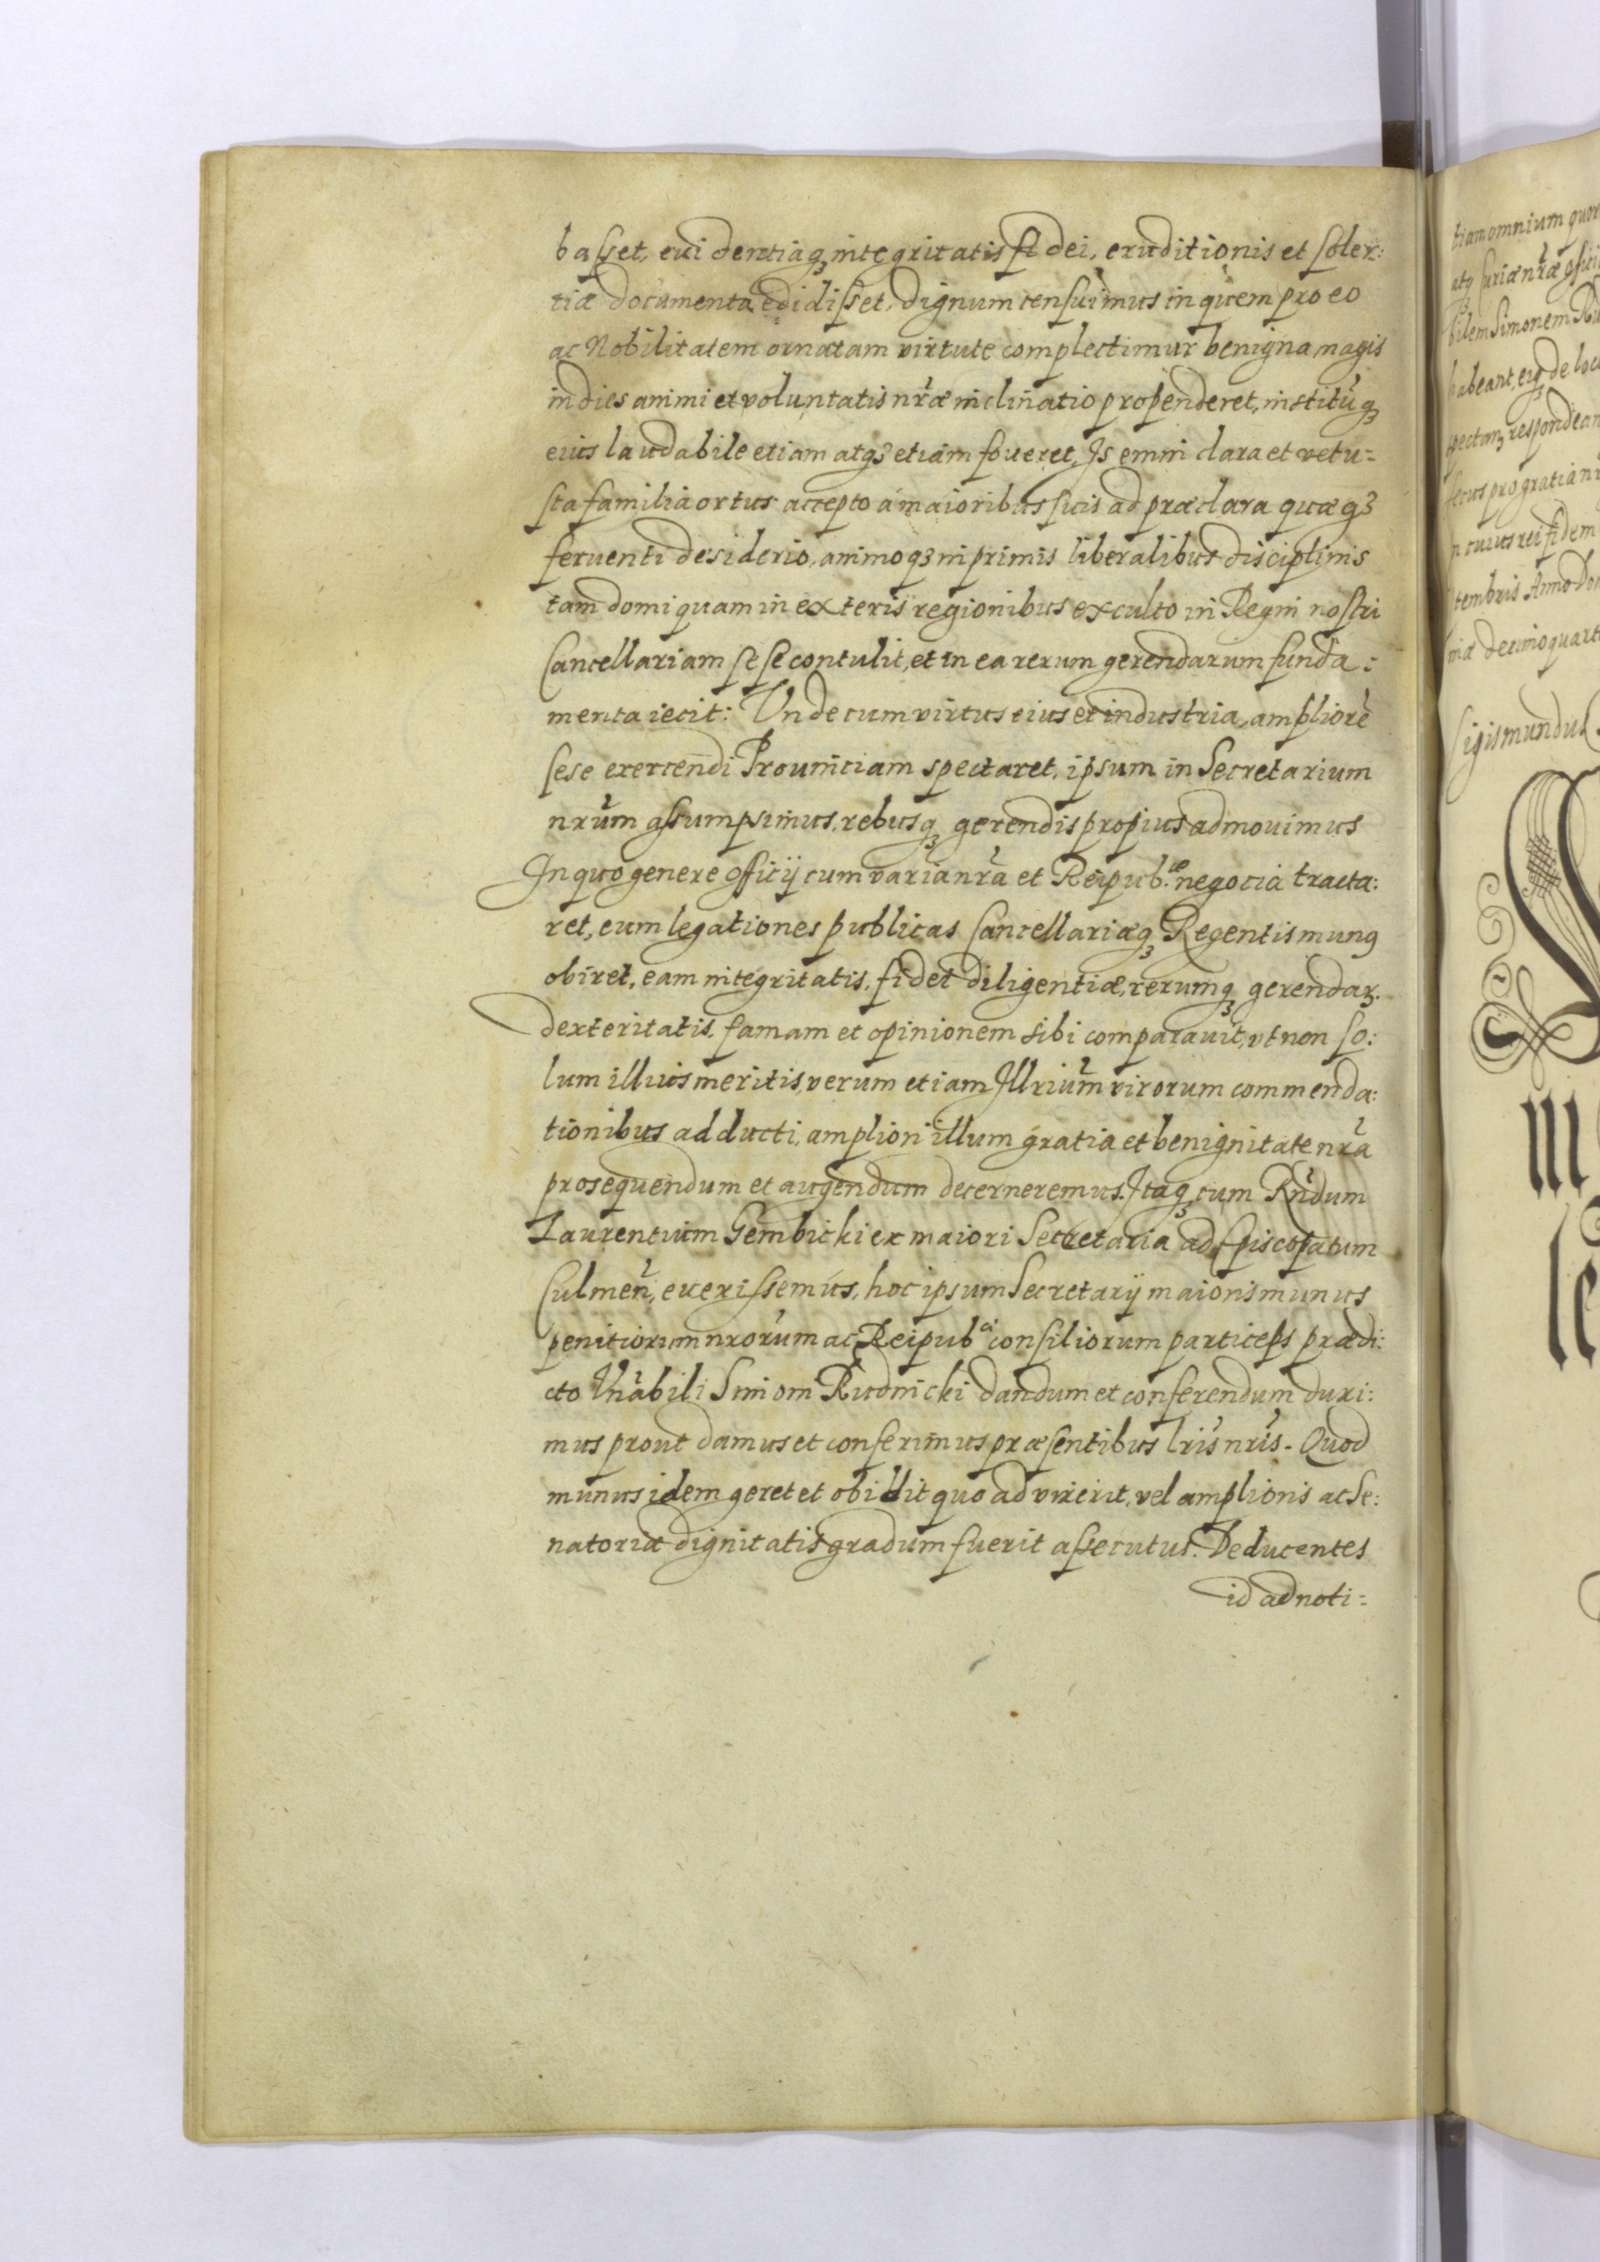 basset, euidentiaq₃ integritatis fidei, eruditionis et soler:
tiæ documenta edidisset, dignum censuimus in quem pro eo
ac Nobilitatem ornatam virtute complectimur benigna magis
indies animi et voluntatis nr̃æ inclinatio propenderet, institũq₃
eius laudabile etiam atq₃ etiam foueret. Is enim clara et vetu=
sta familia ortus accepto á maioribus suis ad præclara quæq₃
feruenti desiderio, animoq₃ inprimis liberalibus disciplinis
tam domi quam in exteris regionibus exculto in Regni nostri
Cancellariam sese contulit, et in ea rerum gerendarum funda:
menta iecit: Vnde cum virtus eius et industria, ampliorẽ
sese exercendi Prouinciam spectaret, ipsum in Secretarium
nrũm assumpsimus, rebusq₃ gerendis propius admouimus
In quo genere officij cum varia nr̃a et Reipub.æ negocia tracta:
ret, cum legationes publicas Cancellariæq₃ Regentis munq
obiret, eam integritatis, fidei diligentiæ, rerumq₃ gerendaꝝ.
dexteritatis, famam et opinionem sibi comparauit, vt non so:
lum illius meritis, verum etiam Illriũm virorum commenda:
tionibus adducti, ampliori illum gratia et benignitate nr̃a
prosequendum et augendum decerneremus. Itaq₃ cum Rñdum
Laurentium Gembicki ex maiori Secretaria ad Episcopatum
Culmeñ, euexissemus, hoc ipsum Secretarij maioris munus
penitiorum nrorũm ac Reipub.æ consiliorum particeps prædi:
cto Vnãbili Simoni Rudnicki dandum et conferendum duxi:
mus prout damus et conferimus præsentibus lrĩs nrĩs. Quod
munus idem geret et obibit quoad vixerit, vel amplioris ac Se:
natoriæ dignitatis gradum fuerit assecutus. Deducentes
id ad noti=
tiam omnium quor
atq₃ Curiæ nr̃æ offici
bilem Simonem Ru
habeant, eiq₃ de loco
spectanꝝ respondean
secus pro gratia nr
n cuius rei fidem
tembris Anno Do
niæ decimo quarto
Sigismundus
m
le